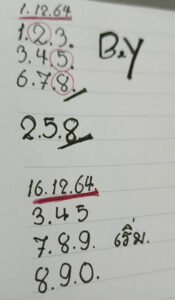 1.12.64
1.2.3.
3.4.5
6.7.8.
B.Y
2.5.8.
16.12.64.
3.4.5
7.8.9. เริ่ม.
8.9.0.